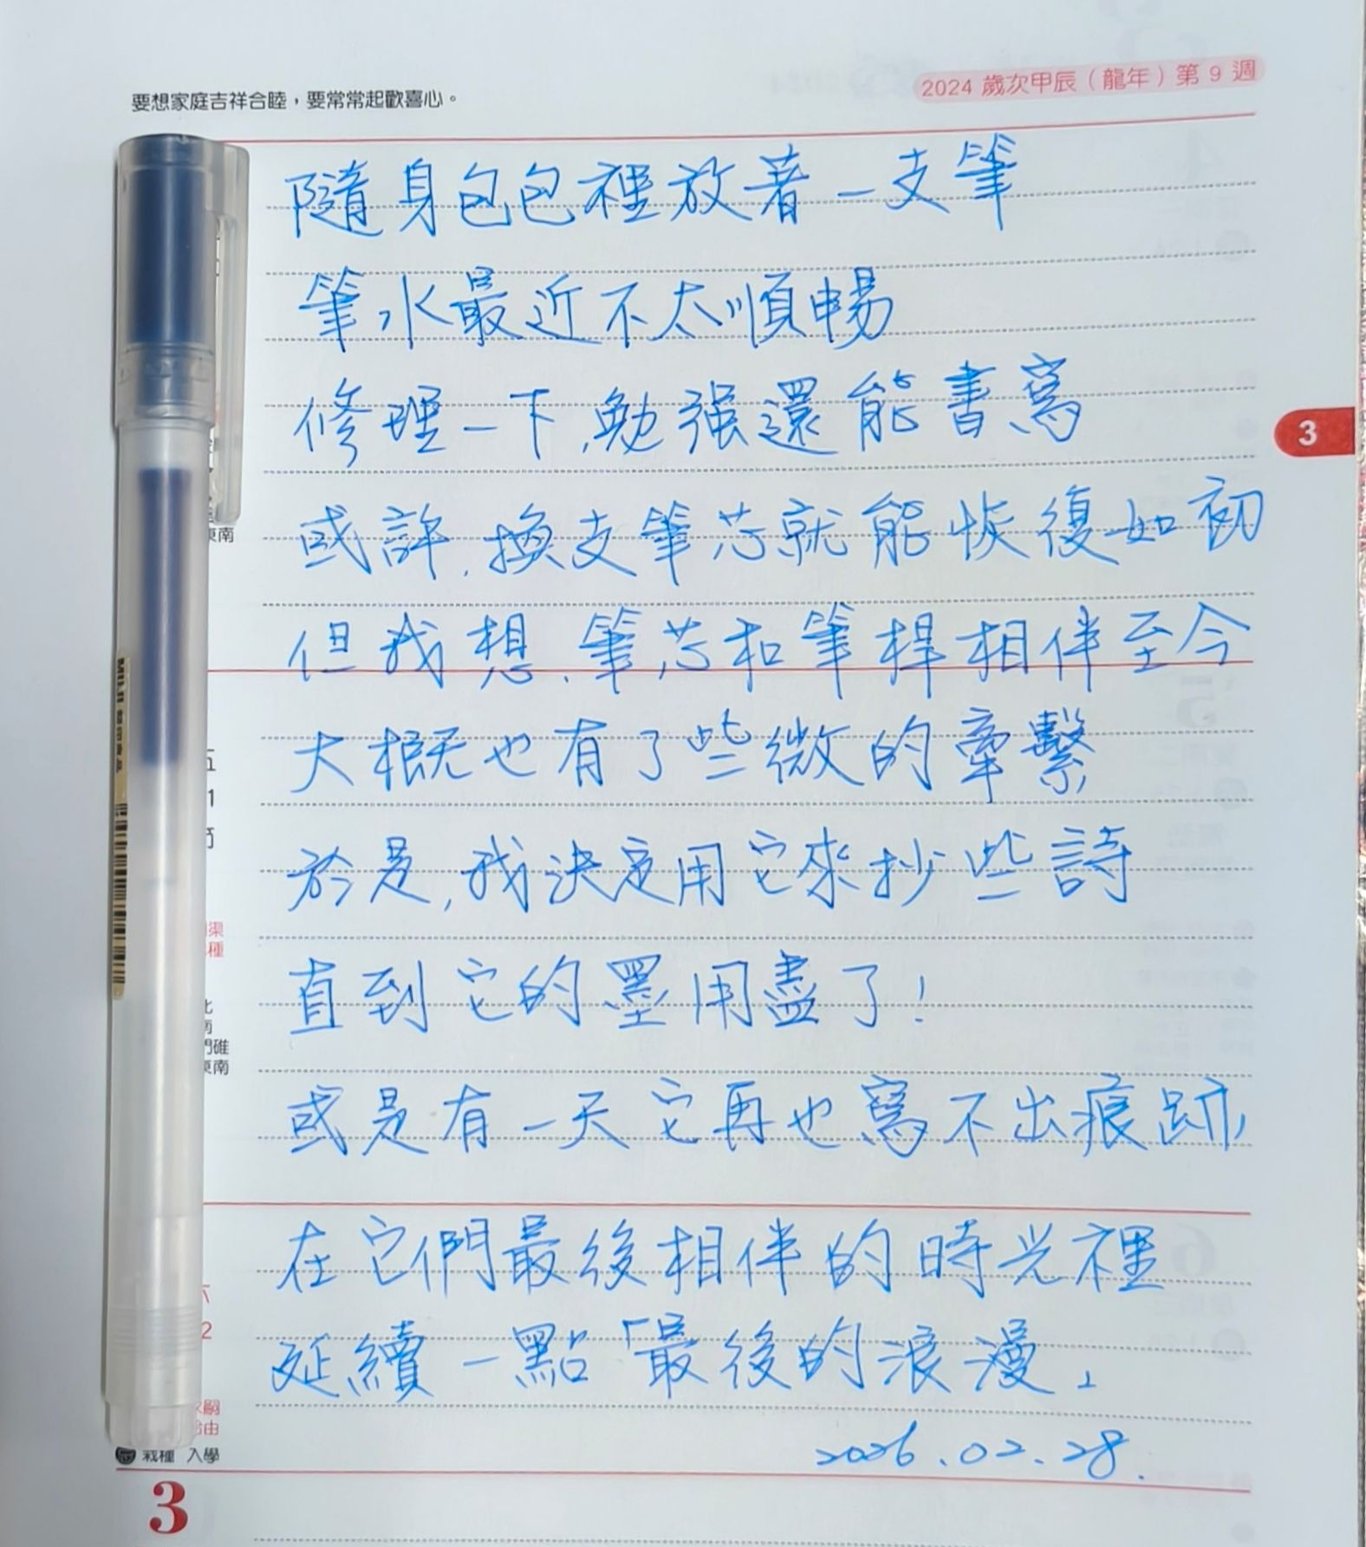 要想家庭吉祥合睦，要常常起歡喜心。
2024 歲次甲辰（龍年）第 9 週
隨身包包裡放著一支筆
筆水最近不太順暢
修理一下,勉強還能書寫
3
或許,換支筆芯就能恢復如初
東南
但我想,筆芯和筆桿相伴至今
大概也有了些微的牽繫
於是,我決定用它來抄些詩
直到它的墨用盡了!
或是有一天它再也寫不出痕跡,
在它們最後相伴的時光裡
延續一點「最後的浪漫」
2026.02.28.
MUJI 無印良品
渠
種
北
南
門礁
東南
2
嗣
由
栽種 入學
3